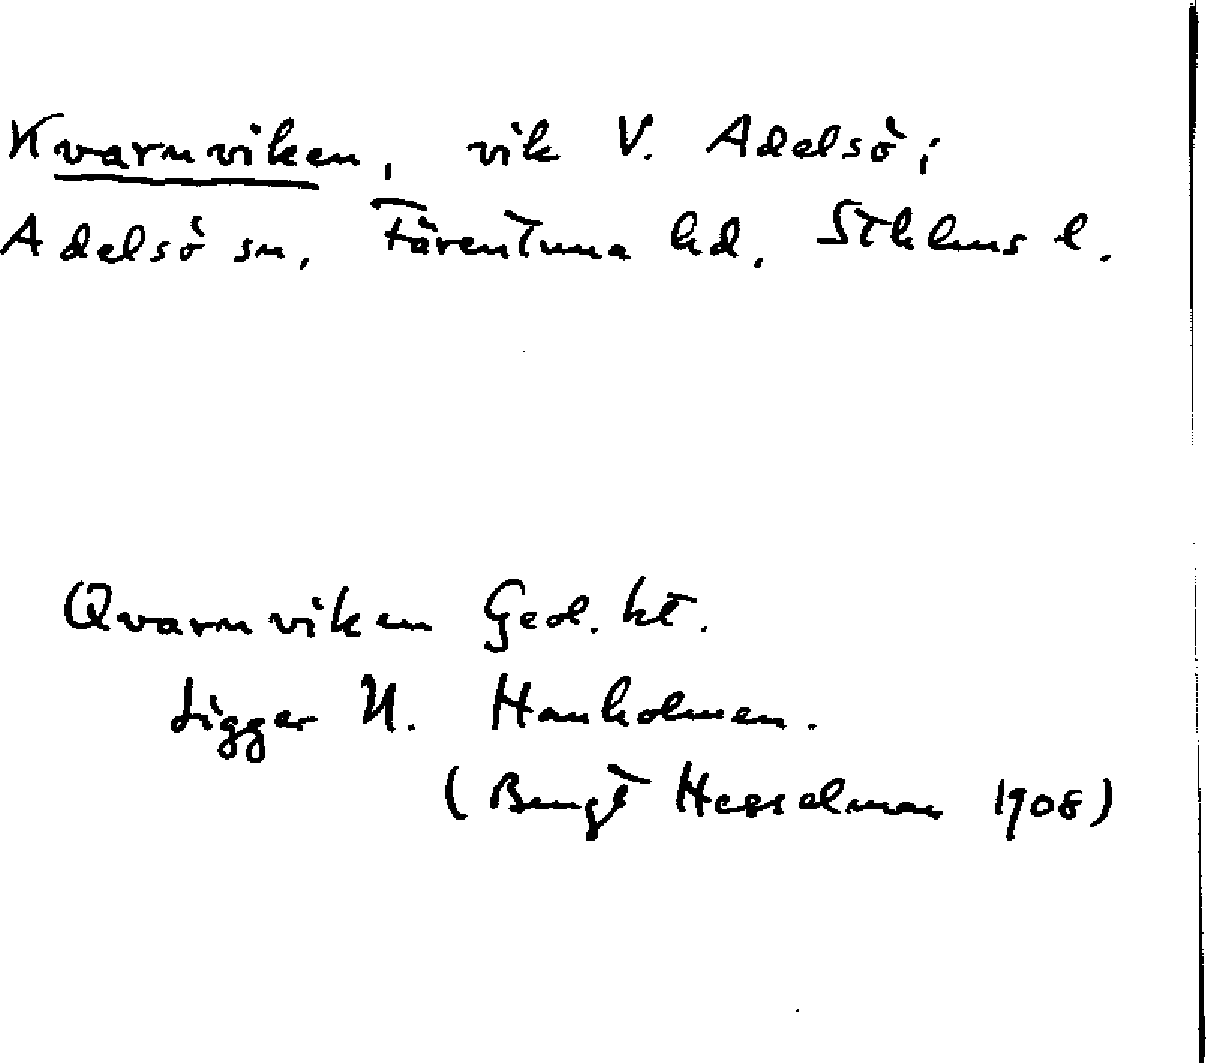 Kvarnviken, vik V. Adelsö;
Adelsö sn, Färentuna hd. Sthlms l.
Qvarnviken Geol. kt.
Ligger N. Hanholmen.
(Bengt Hesselman 1908)